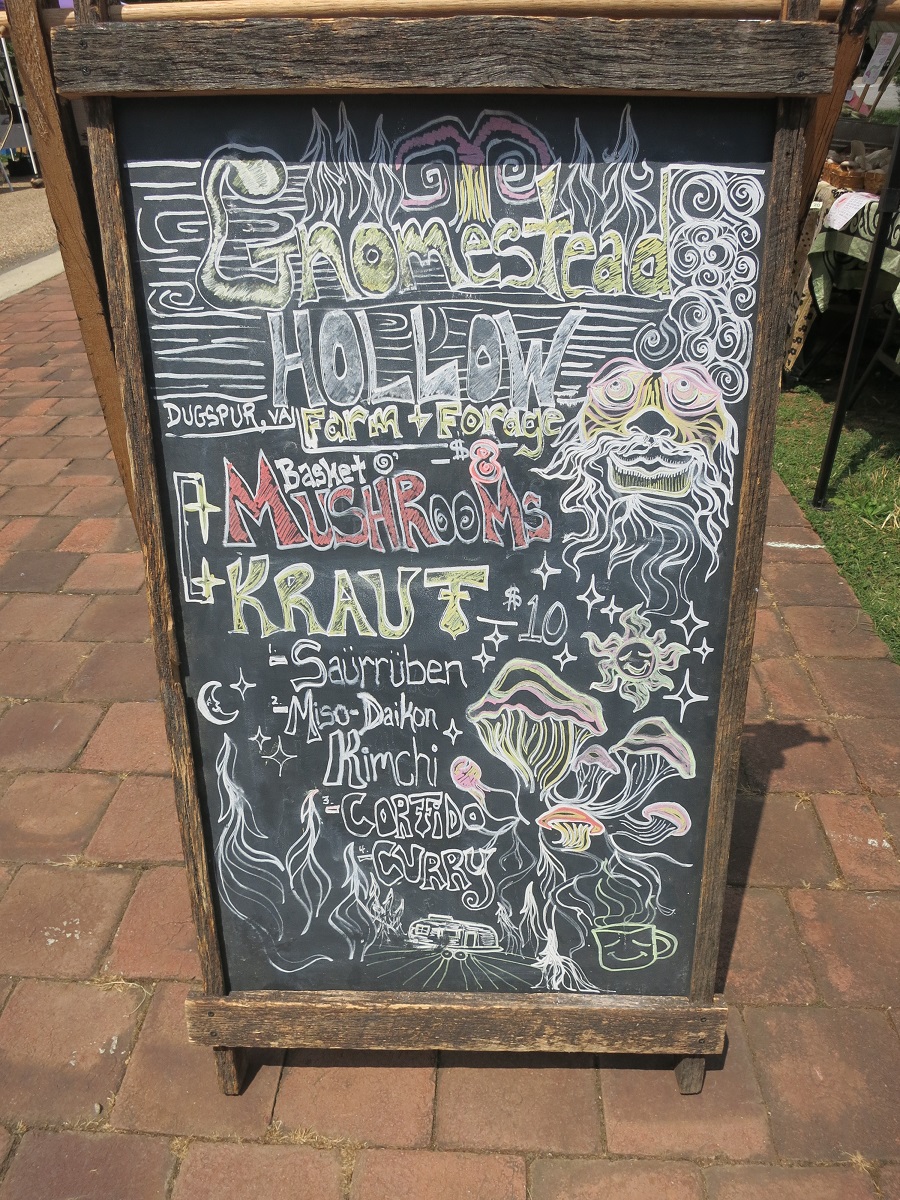 Gnomestead
HOLLOW
DUGSPUR, VA
Farm + Forage
Basket @ - $8
MUSHROOMS
KRAUT - $10
1- Saürrüben
2- Miso-Daikon
Kimchi
3- CORTIDO
4- CURRY